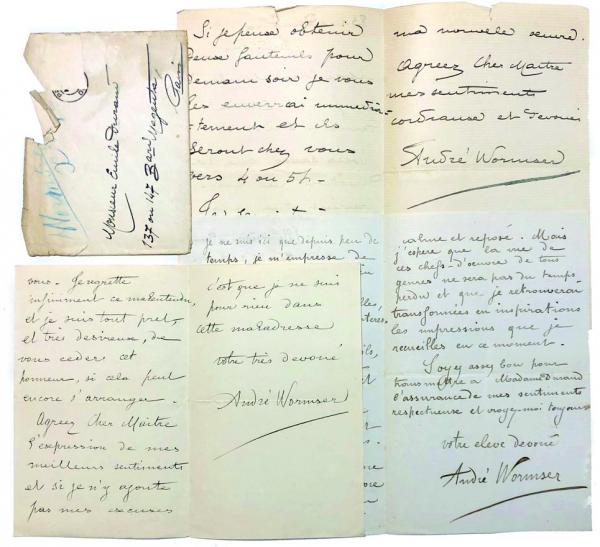 Monsieur Emile Durand
137 ou 147 Bard Magenta
Paris
Si je peux obtenir
deux fauteuils pour
demain soir je vous
les enverrai immédia-
tement et ils
seront chez vous
vers 4 ou 5h-
ma nouvelle oeuvre.
Agreez Cher Maitre
mes sentiments
cordiaux et dévoués
André Wormser
je ne suis ici que depuis peu de
temps, je m'empresse de
calme et reposé. Mais
j'espère que la vue de
ces chefs-d'oeuvre de tous
genres ne sera pas du temps
perdu et que je retrouverai
transformées en inspirations
les impressions que je
recueilles en ce moment.
Soyez assez bon pour
transmettre à Madame Durand
l'assurance de mes sentiments
respectueux et croyez-moi toujours
votre eleve devoué
André Wormser
vous. Je regrette
infiniment ce malentendu,
et je suis tout pret,
et très desireux, de
vous ceder cet
honneur, si cela peut
encore s'arranger.
Agreez Cher Maitre
l'expression de mes
meilleurs sentiments
et si je n'y ajoute
pas mes excuses
c'est que je ne suis
pour rien dans
cette maladresse
votre très devoué
André Wormser